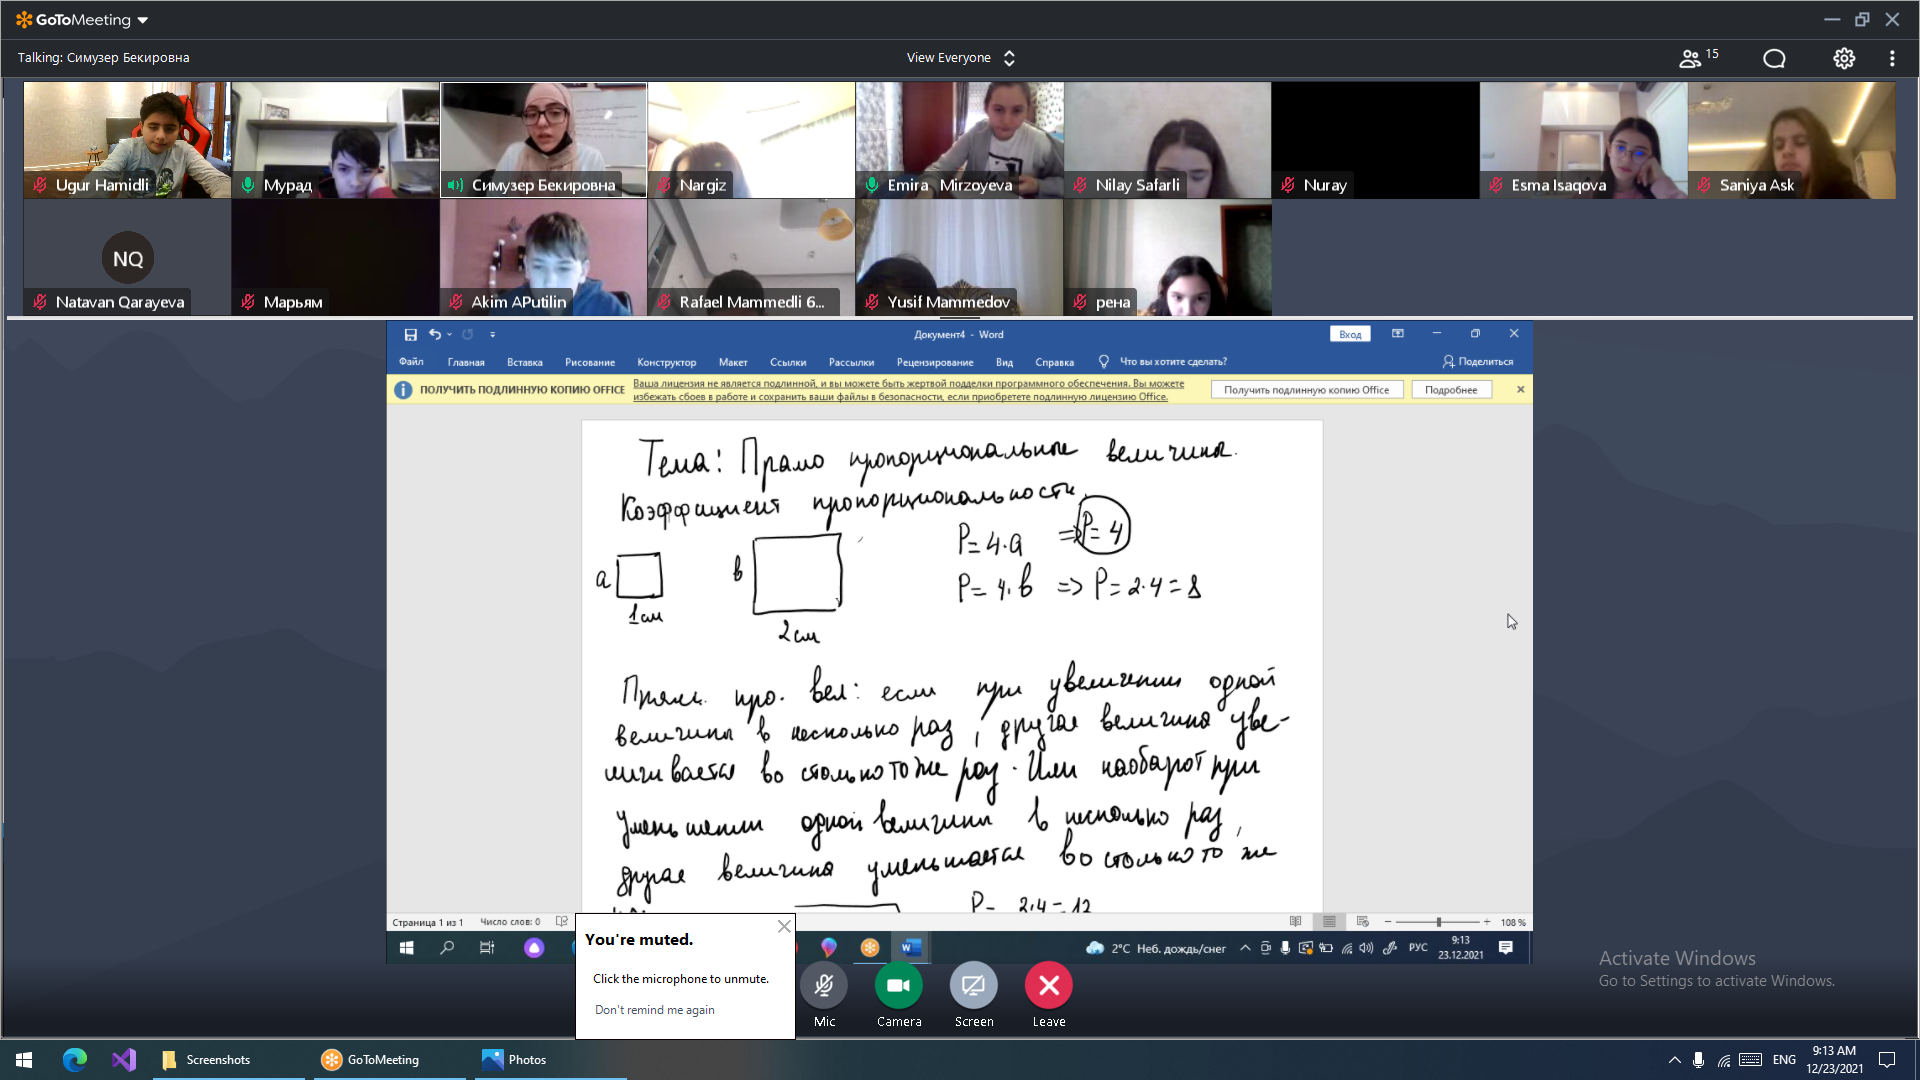 GoToMeeting
Talking: Симузер Бекировна
View Everyone
15
Ugur Hamidli
Мурад
Симузер Бекировна
Nargiz
Emira Mirzoyeva
Nilay Safarli
Nuray
Esma Isaqova
Saniya Ask
NQ
Natavan Qarayeva
Марьям
Akim APutilin
Rafael Mammedli 6...
Yusif Mammedov
рена
Документ4 - Word
Вход
Файл Главная Вставка Рисование Конструктор Макет Ссылки Рассылки Рецензирование Вид Справка Что вы хотите сделать? Поделиться
ПОЛУЧИТЬ ПОДЛИННУЮ КОПИЮ OFFICE
Ваша лицензия не является подлинной, и вы можете быть жертвой подделки программного обеспечения. Вы можете
избежать сбоев в работе и сохранить ваши файлы в безопасности, если приобретете подлинную лицензию Office.
Получить подлинную копию Office
Подробнее
Тема: Прямо пропорциональные величины.
Коэффициент пропорциональности.
P=4·a => P=4
P=4·в => P=2·4=8
a
1см
в
2см
Прям. про. вел: если при увеличении одной
величины в несколько раз, другая величина уве-
личивается во столько то же раз. Или наобарот при
уменьшении одной величины в несколько раз,
другая величина уменьшается во столько то же
P= 3·4=12
Страница 1 из 1 Число слов: 0
108 %
2°C Неб. дождь/снег
РУС
9:13
23.12.2021
You're muted.
Click the microphone to unmute.
Don't remind me again
Mic
Camera
Screen
Leave
Activate Windows
Go to Settings to activate Windows.
Screenshots
GoToMeeting
Photos
ENG
9:13 AM
12/23/2021